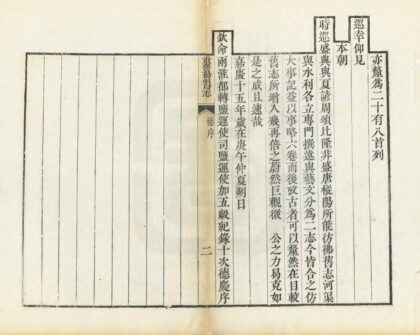 亦釐為二十有八首列
巡幸仰見
本朝
時巡盛典與夏諺周頌比隆非盛唐樅陽所能彷彿舊志河渠
與水利各立專門撰述與藝文分為二志今皆合之仿
大事記益以事略六卷而後攷古者可以釐然在目較
舊志所增入幾再倍之蔚然巨觀微 公之力易克如
是之咸且速哉
嘉慶十五年歲在庚午仲夏朔日
欽命兩淮都轉鹽運使司鹽運使加五級紀錄十次德慶序
重修揚州府志
德序
二